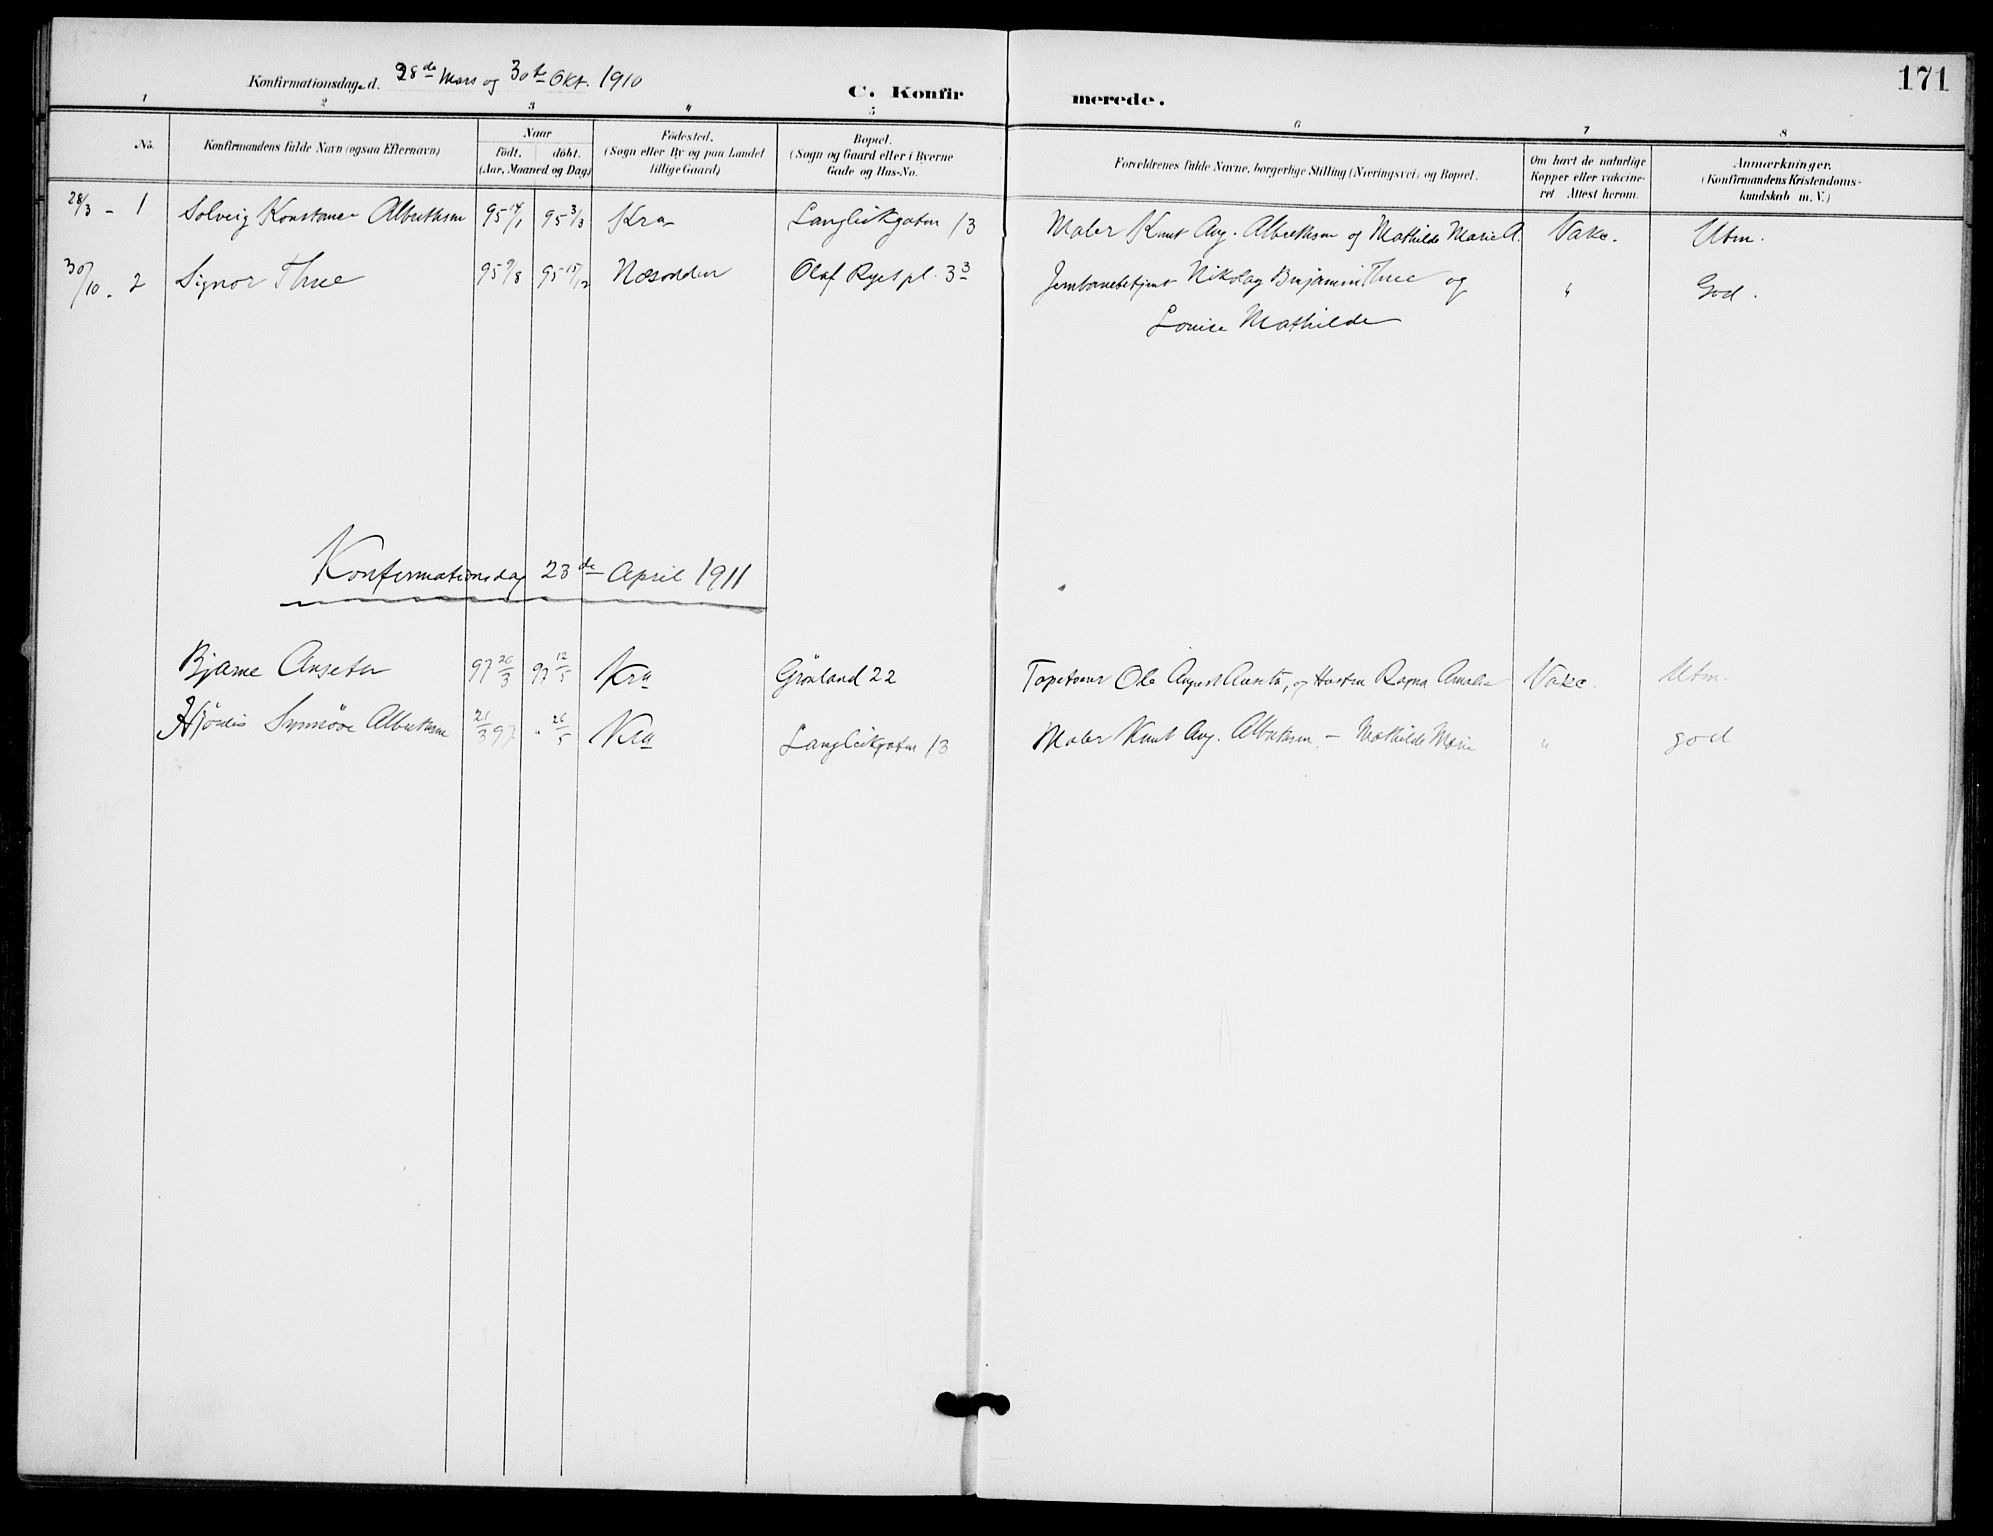 171
Konfirmationsdage d. 28de Mars og 30te Okt. 1910
C. Konfirmerede.
1 2 3 " 5 6 7 8
No.
Konfirmandens fulde Navn (ogsaa Efternavn)
Naar
födt. döbt.
(Aar, Maaned og Dag)
Födested.
(Sogn eller By og paa Landet
tillige Gaard)
Bopæl.
(Sogn og Gaard eller i Byerne
Gade og Hus-No.
Forældrenes fulde Navne, borgerlige Stilling (Næringsvei) og Bopæl.
Om havt de naturlige
Kopper eller vakcine-
ret Attest herom.
Anmærkninger.
(Konfirmandens Kristendoms-
kundskab m. V.)
28/3 - 1 Solveig Konstance Alberthsen 95 14/1 95 3/3 Kra Langleikgaten 13 Maler Knut Aug. Alberthsen og Mathilde Marie A. Vakc. Utm.
30/10 - 2 Signor Thue 95 9/8 95 15/12 Næsodden Olaf Ryes pl. 3 3 Jernbanebetjent Nikolay Benjamin Thue og " God.
Louise Mathilde
Konfirmationsdag 23de April 1911
Bjarne Anseten 97 20/3 97 12/5 Kra Grönland 22 Ole August og Hustru Ragna Amalie Vakc. Utm.
Hjördis Synnöve Alberthsen 21/3 97 " 26/5 Kra Langleikgaten 13 Maler Knut Aug. Alberthsen - Mathilde Marie " god